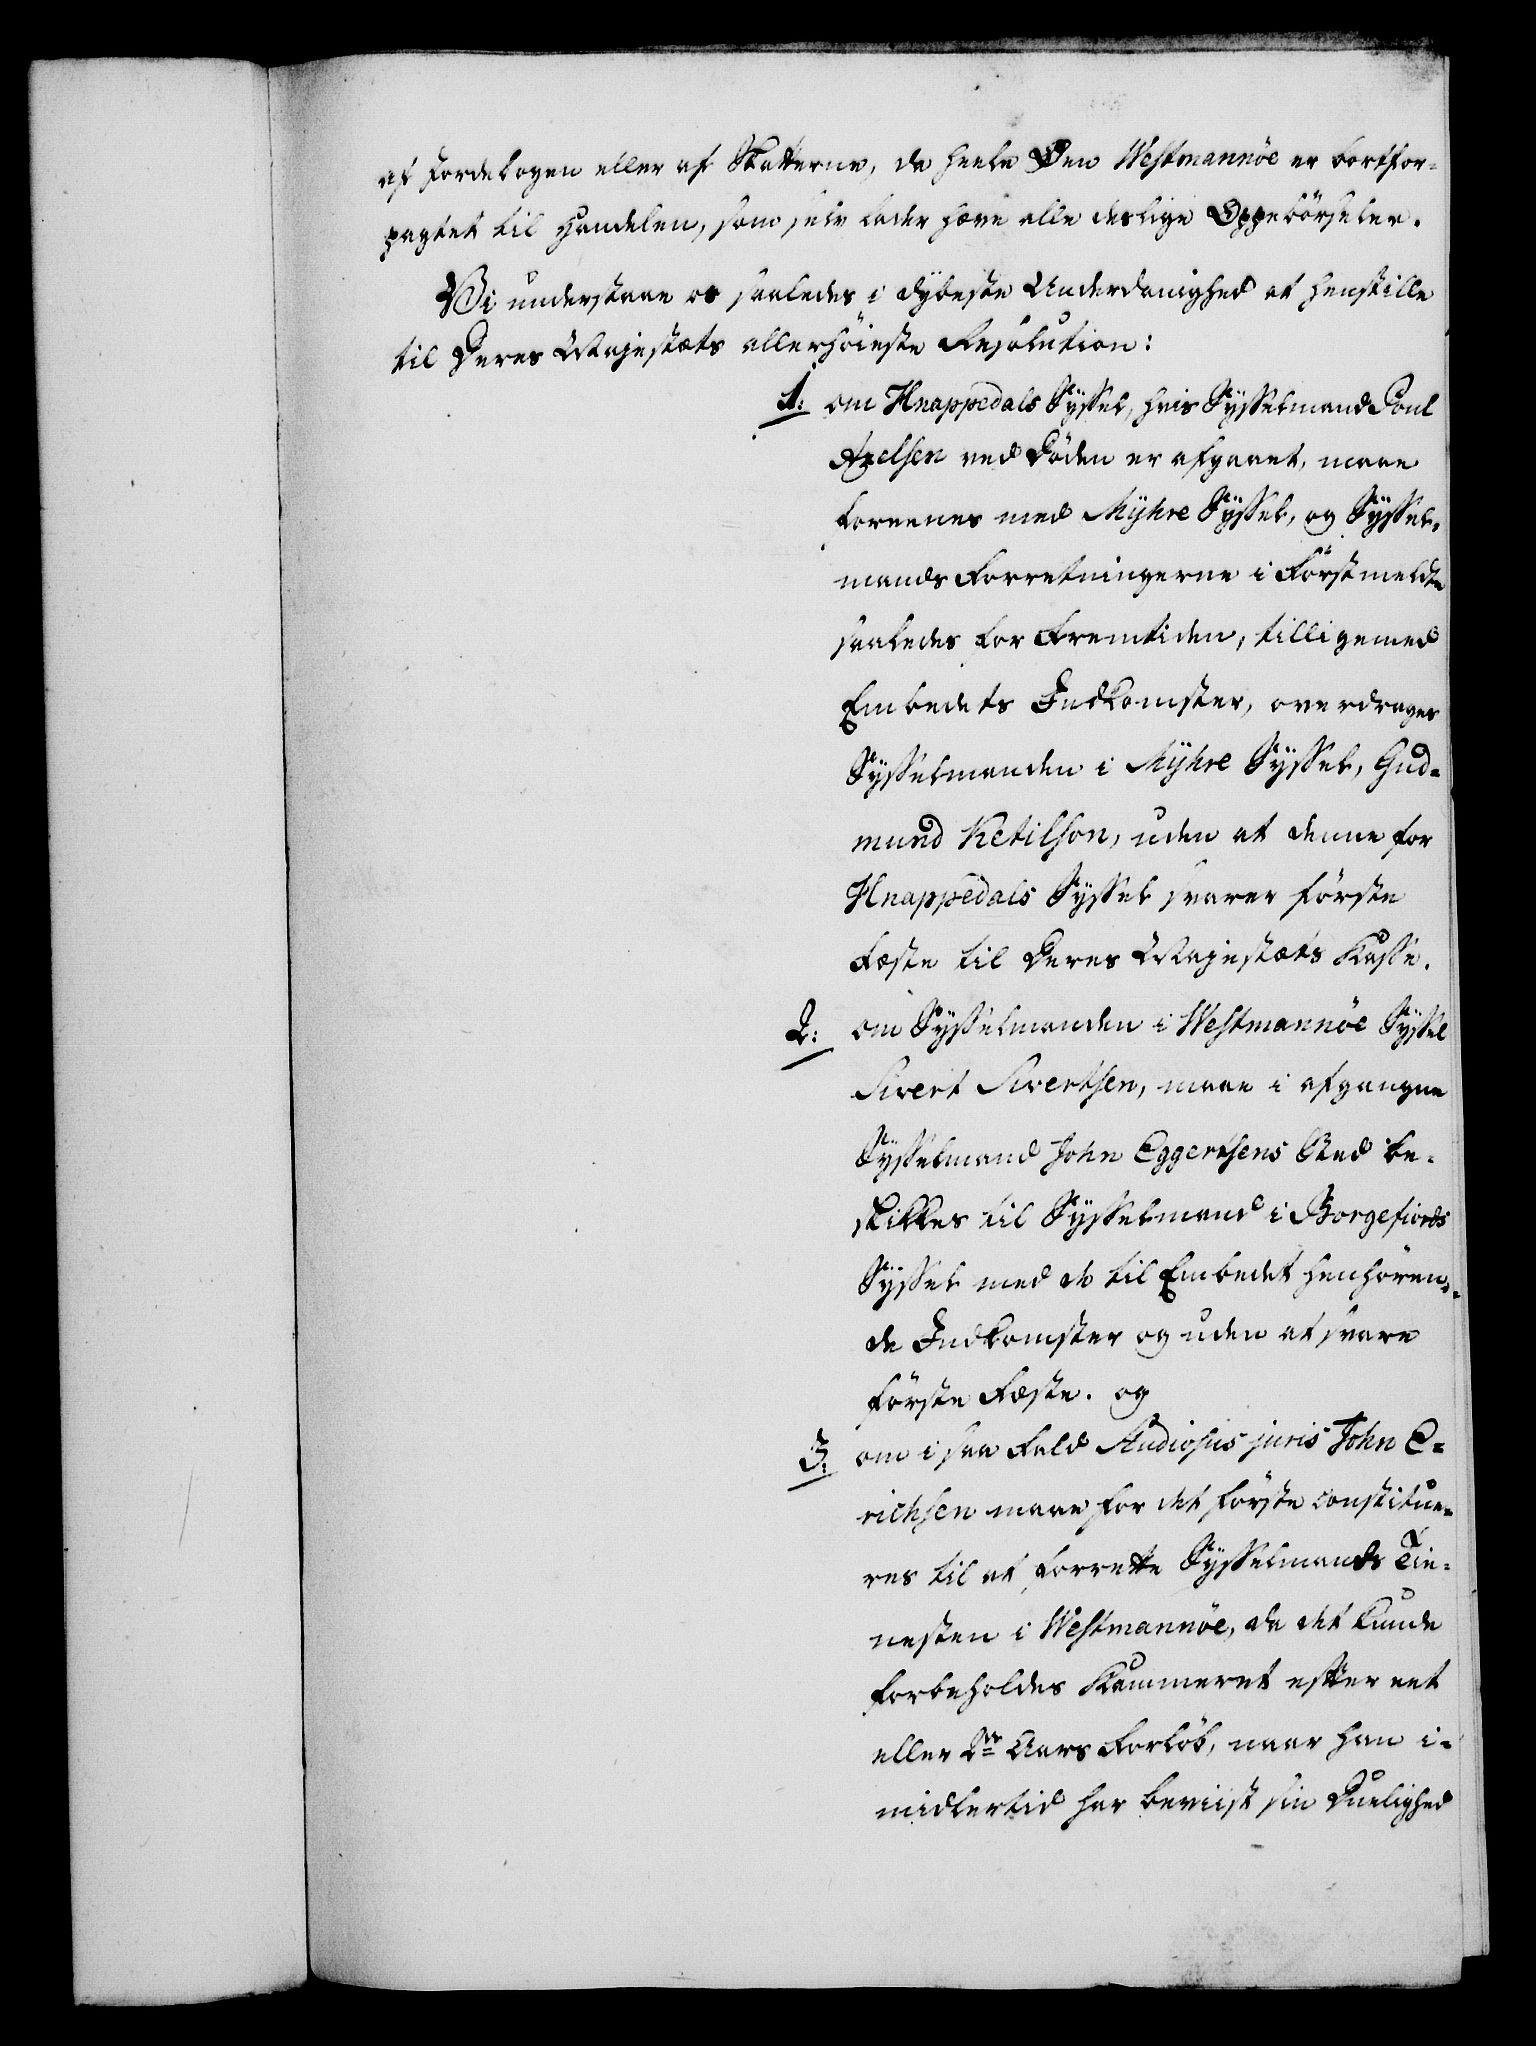 af Jordebogen eller af Skatterne, da heele Øen Westmannöe er bortfor-
pagtet til Handelen, som selv lader hæve alle deslige Oppebörseler.
Vi understaae os saaledes i dÿbeste Underdanighed at henstille
til Deres Majestæts allerhöieste Resolution:
1: om Hnappedals Sÿssel, hvis Sÿsselmand Poul
Axelsen ved Döden er afgaaet, maae
foreenes med Mÿhre Sÿssel, og Sÿssel-
mands Forretningerne i Förstmeldte
saaledes for Fremtiden, tilligemed
Embedets Indkomster, overdrages
Sÿsselmanden i Mÿhre Sÿssel, Gud-
mund Ketilson, uden at denne for
Hnappedals Sÿssel svarer förste
Fæste til Deres Majestæts Kasse.
2: om Sÿsselmanden i Westmannöe Sÿssel
Sivert Sivertsen, maae i afgangne
Sÿsselmand John Eggertsens Sted be-
skikkes til Sÿsselmand i Borgefiords
Sÿssel med de til Embedet henhören-
de Indkomster og uden at svare
förste Fæste. og
3: om i saa Fald Studiosus juris John E-
richsen maae for det förste constitue-
res til at forrette Sÿsselmands Tie-
nesten i Westmannöe, da det kunde
forbeholdes Kammeret efter eet
eller 2de Aars Forlöb, naar han i-
midlertid har beviist sin Duelighed